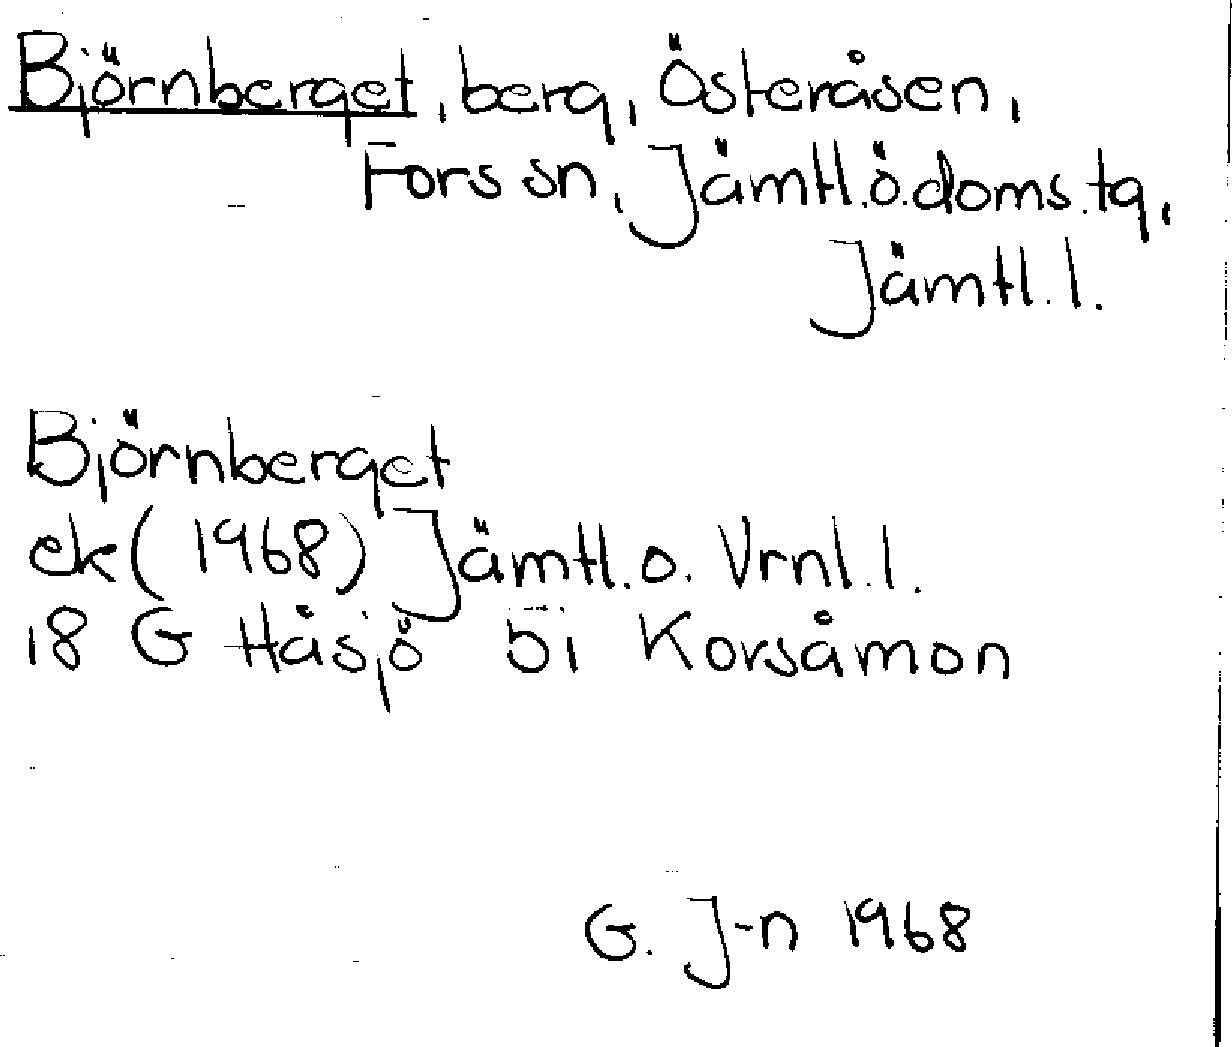 Björnberget, berg, Österåsen,
Fors sn, Jämtl.ö.doms.tg,
Jämtl.l.
Björnberget
ek(1968) Jämtl.o. Vrnl.l.
18 G Håsjö 5i Korsåmon
G. J-n 1968